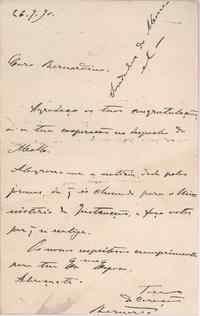 26.7.90.
Caro Bernardino.
Agradeço as tuas congratulações
e a tua cooperação no
Alegrou-me a noticia, dada pelos
jornaes, de q. és chamado para o Mi-
nisterio da Instrucção, e faço votos
por q. se realize.
Os meus respeitosos cumprimentos
para tua Esposa.
Abraça-te
Teu
do Coração